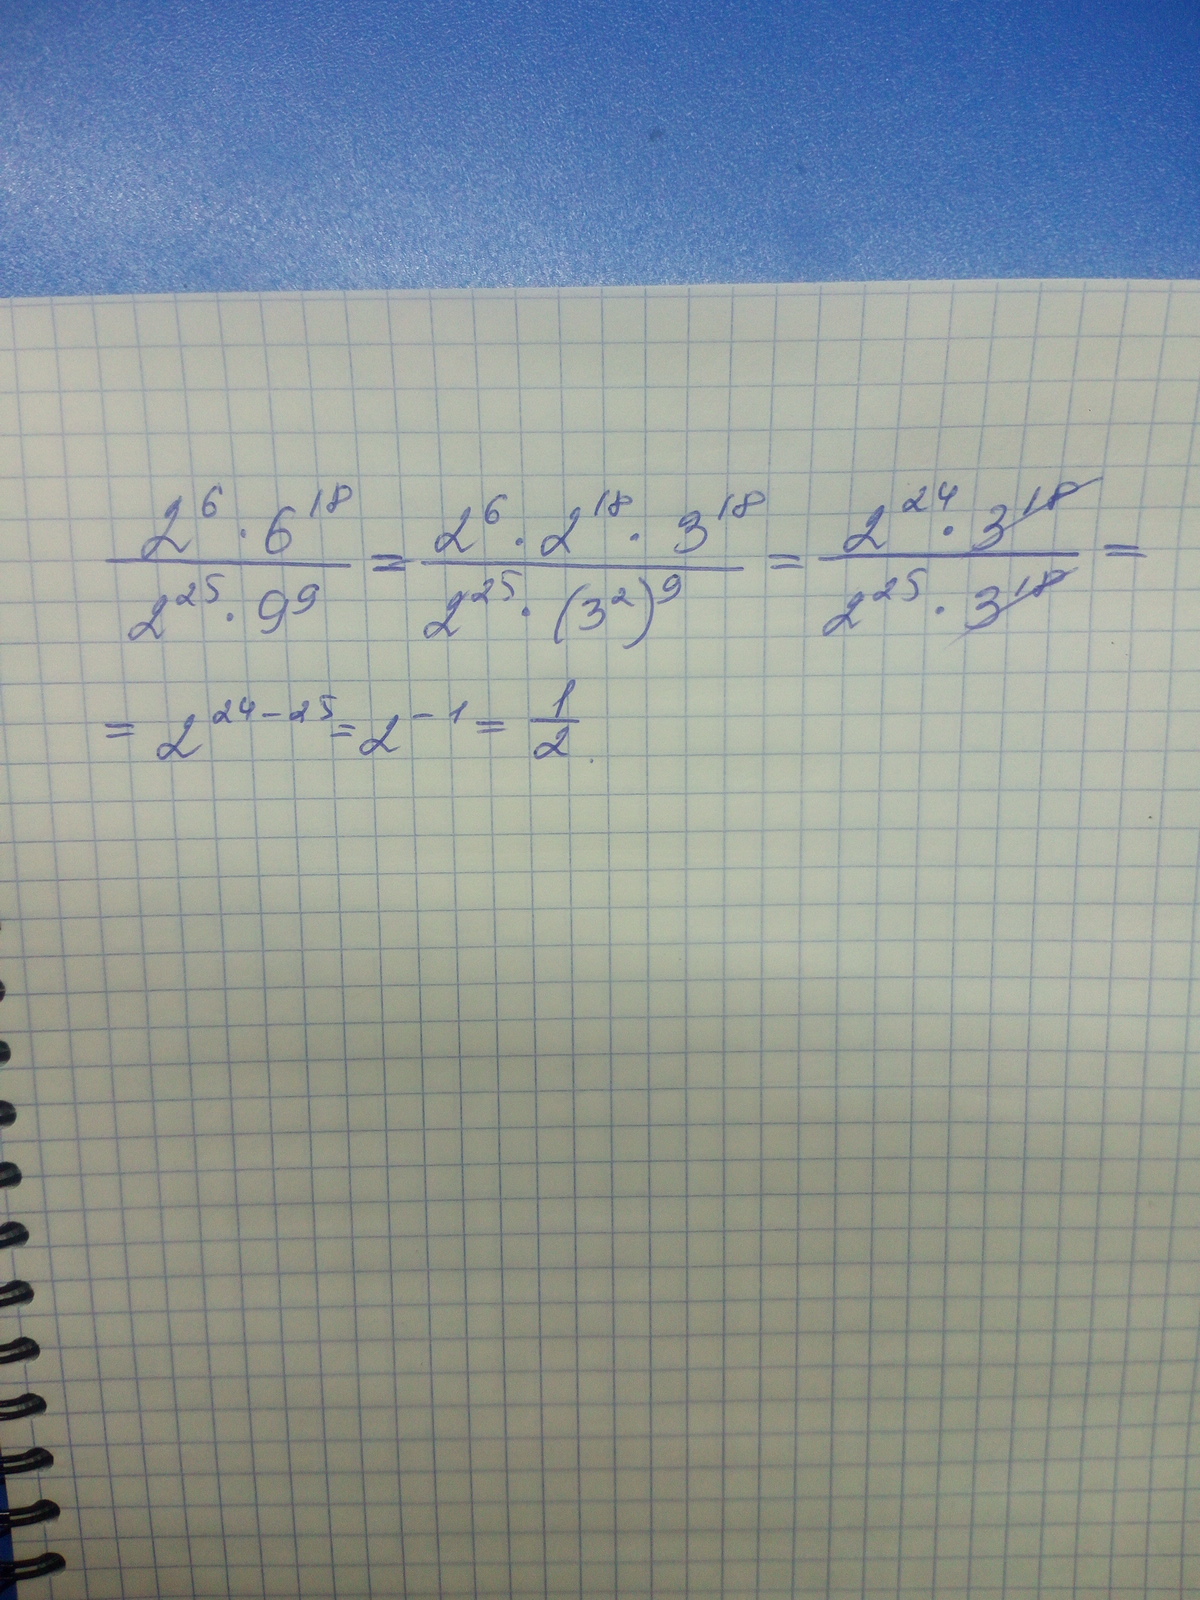 \frac{2^6 \cdot 6^{18}}{2^{25} \cdot 9^9} = \frac{2^6 \cdot 2^{18} \cdot 3^{18}}{2^{25} \cdot (3^2)^9} = \frac{2^{24} \cdot 3^{18}}{2^{25} \cdot 3^{18}} =
= 2^{24-25} = 2^{-1} = \frac{1}{2}.